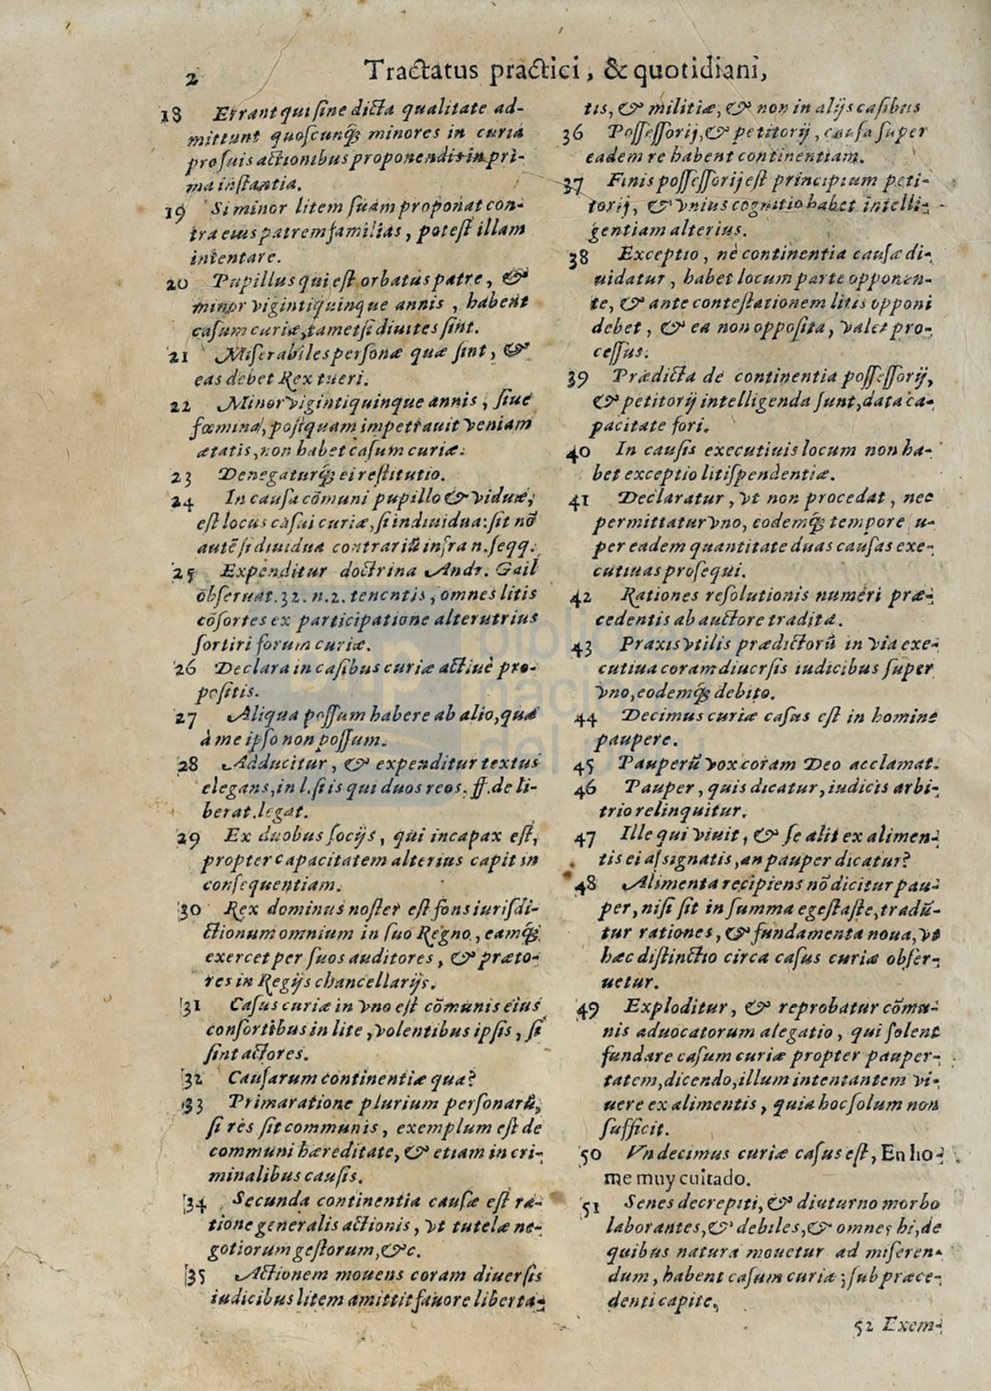 2 Tractatus practici, & quotidiani,
18 Errant qui sine dicta qualitate ad-
mittunt quoscunq; minores in curia
pro suis actionibus proponendis in pri-
ma instantia.
19 Si minor litem suam proponat con-
tra eius patremfamilias, potest illam
intentare.
20 Pupillus qui est orbatus patre, &
minor vigintiquinque annis, habent
casum curiæ, tametsi diuites sint.
21 Miserabiles personæ quæ sint, &
eas debet Rex tueri.
22 Minor vigintiquinque annis, siue
fœmina, postquam impetrauit veniam
ætatis, non habet casum curiæ.
23 Denegaturq; ei restitutio.
24 In causa cõmuni pupillo & viduæ,
est locus casui curiæ, si indiuidua: sit nõ
autẽ si diuidua contrariũ infra n. seqq.
25 Expenditur doctrina Andr. Gail
obseruat. 32. n. 2. tenentis, omnes litis
cõsortes ex participatione alterutrius
sortiri forum curiæ.
26 Declara in casibus curiæ actiuè pro-
positis.
27 Aliqua possum habere ab alio, quæ
à me ipso non possum.
28 Adducitur, & expenditur textus
elegans, in l. si is qui duos reos. ff. de li-
berat. legat.
29 Ex duobus socijs, qui incapax est,
propter capacitatem alterius capit in
consequentiam.
30 Rex dominus noster est fons iurisdi-
ctionum omnium in suo Regno, eamq;
exercet per suos auditores, & præto-
res in Regijs chancellarijs.
31 Casus curiæ in vno est cõmunis eius
consortibus in lite, volentibus ipsis, si
sint actores.
32 Causarum continentiæ qua?
33 Prima ratione plurium personarũ,
si res sit communis, exemplum est de
communi hæreditate, & etiam in cri-
minalibus causis.
34 Secunda continentia causæ est ra-
tione generalis actionis, vt tutelæ ne-
gotiorum gestorum, &c.
35 Actionem mouens coram diuersis
iudicibus litem amittit fauore liberta-
tis, & militiæ, & non in alijs casibus
36 Possessorij, & petitorij, causa super
eadem re habent continentiam.
37 Finis possessorij est principium peti-
torij, & vnius cognitio habet intelli-
gentiam alterius.
38 Exceptio, nè continentia causæ di-
uidatur, habet locum parte opponen-
te, & ante contestationem litis opponi
debet, & ea non opposita, valet pro-
cessus.
39 Prædicta de continentia possessorij,
& petitorij intelligenda sunt, data ca-
pacitate fori.
40 In causis executiuis locum non ha-
bet exceptio litispendentiæ.
41 Declaratur, vt non procedat, nec
permittatur vno, eodemq; tempore, u-
per eadem quantitate duas causas exe-
cutiuas prosequi.
42 Rationes resolutionis numeri præ-
cedentis ab auctore tradita.
43 Praxis vtilis prædictorũ in via exe-
cutiua coram diuersis iudicibus super
vno, eodemq; debito.
44 Decimus curiæ casus est in homine
paupere.
45 Pauperũ vox coram Deo acclamat.
46 Pauper, quis dicatur, iudicis arbi-
trio relinquitur.
47 Ille qui viuit, & se alit ex alimen-
tis ei assignatis, an pauper dicatur?
48 Alimenta recipiens nõ dicitur pau-
per, nisi sit in summa egestaste, tradũ-
tur rationes, & fundamenta noua, vt
hæc distinctio circa casus curiæ obser-
uetur.
49 Exploditur, & reprobatur cõmu-
nis aduocatorum alegatio, qui solent
fundare casum curiæ propter pauper-
tatem, dicendo, illum intentantem vi-
uere ex alimentis, quia hoc solum non
sufficit.
50 Vndecimus curiæ casus est, En ho-
me muy cuitado.
51 Senes decrepiti, & diuturno morbo
laborantes, & debiles, & omnes hi, de
quibus natura mouetur ad miseren-
dum, habent casum curiæ; sub præce-
denti capite.
52 Exem-